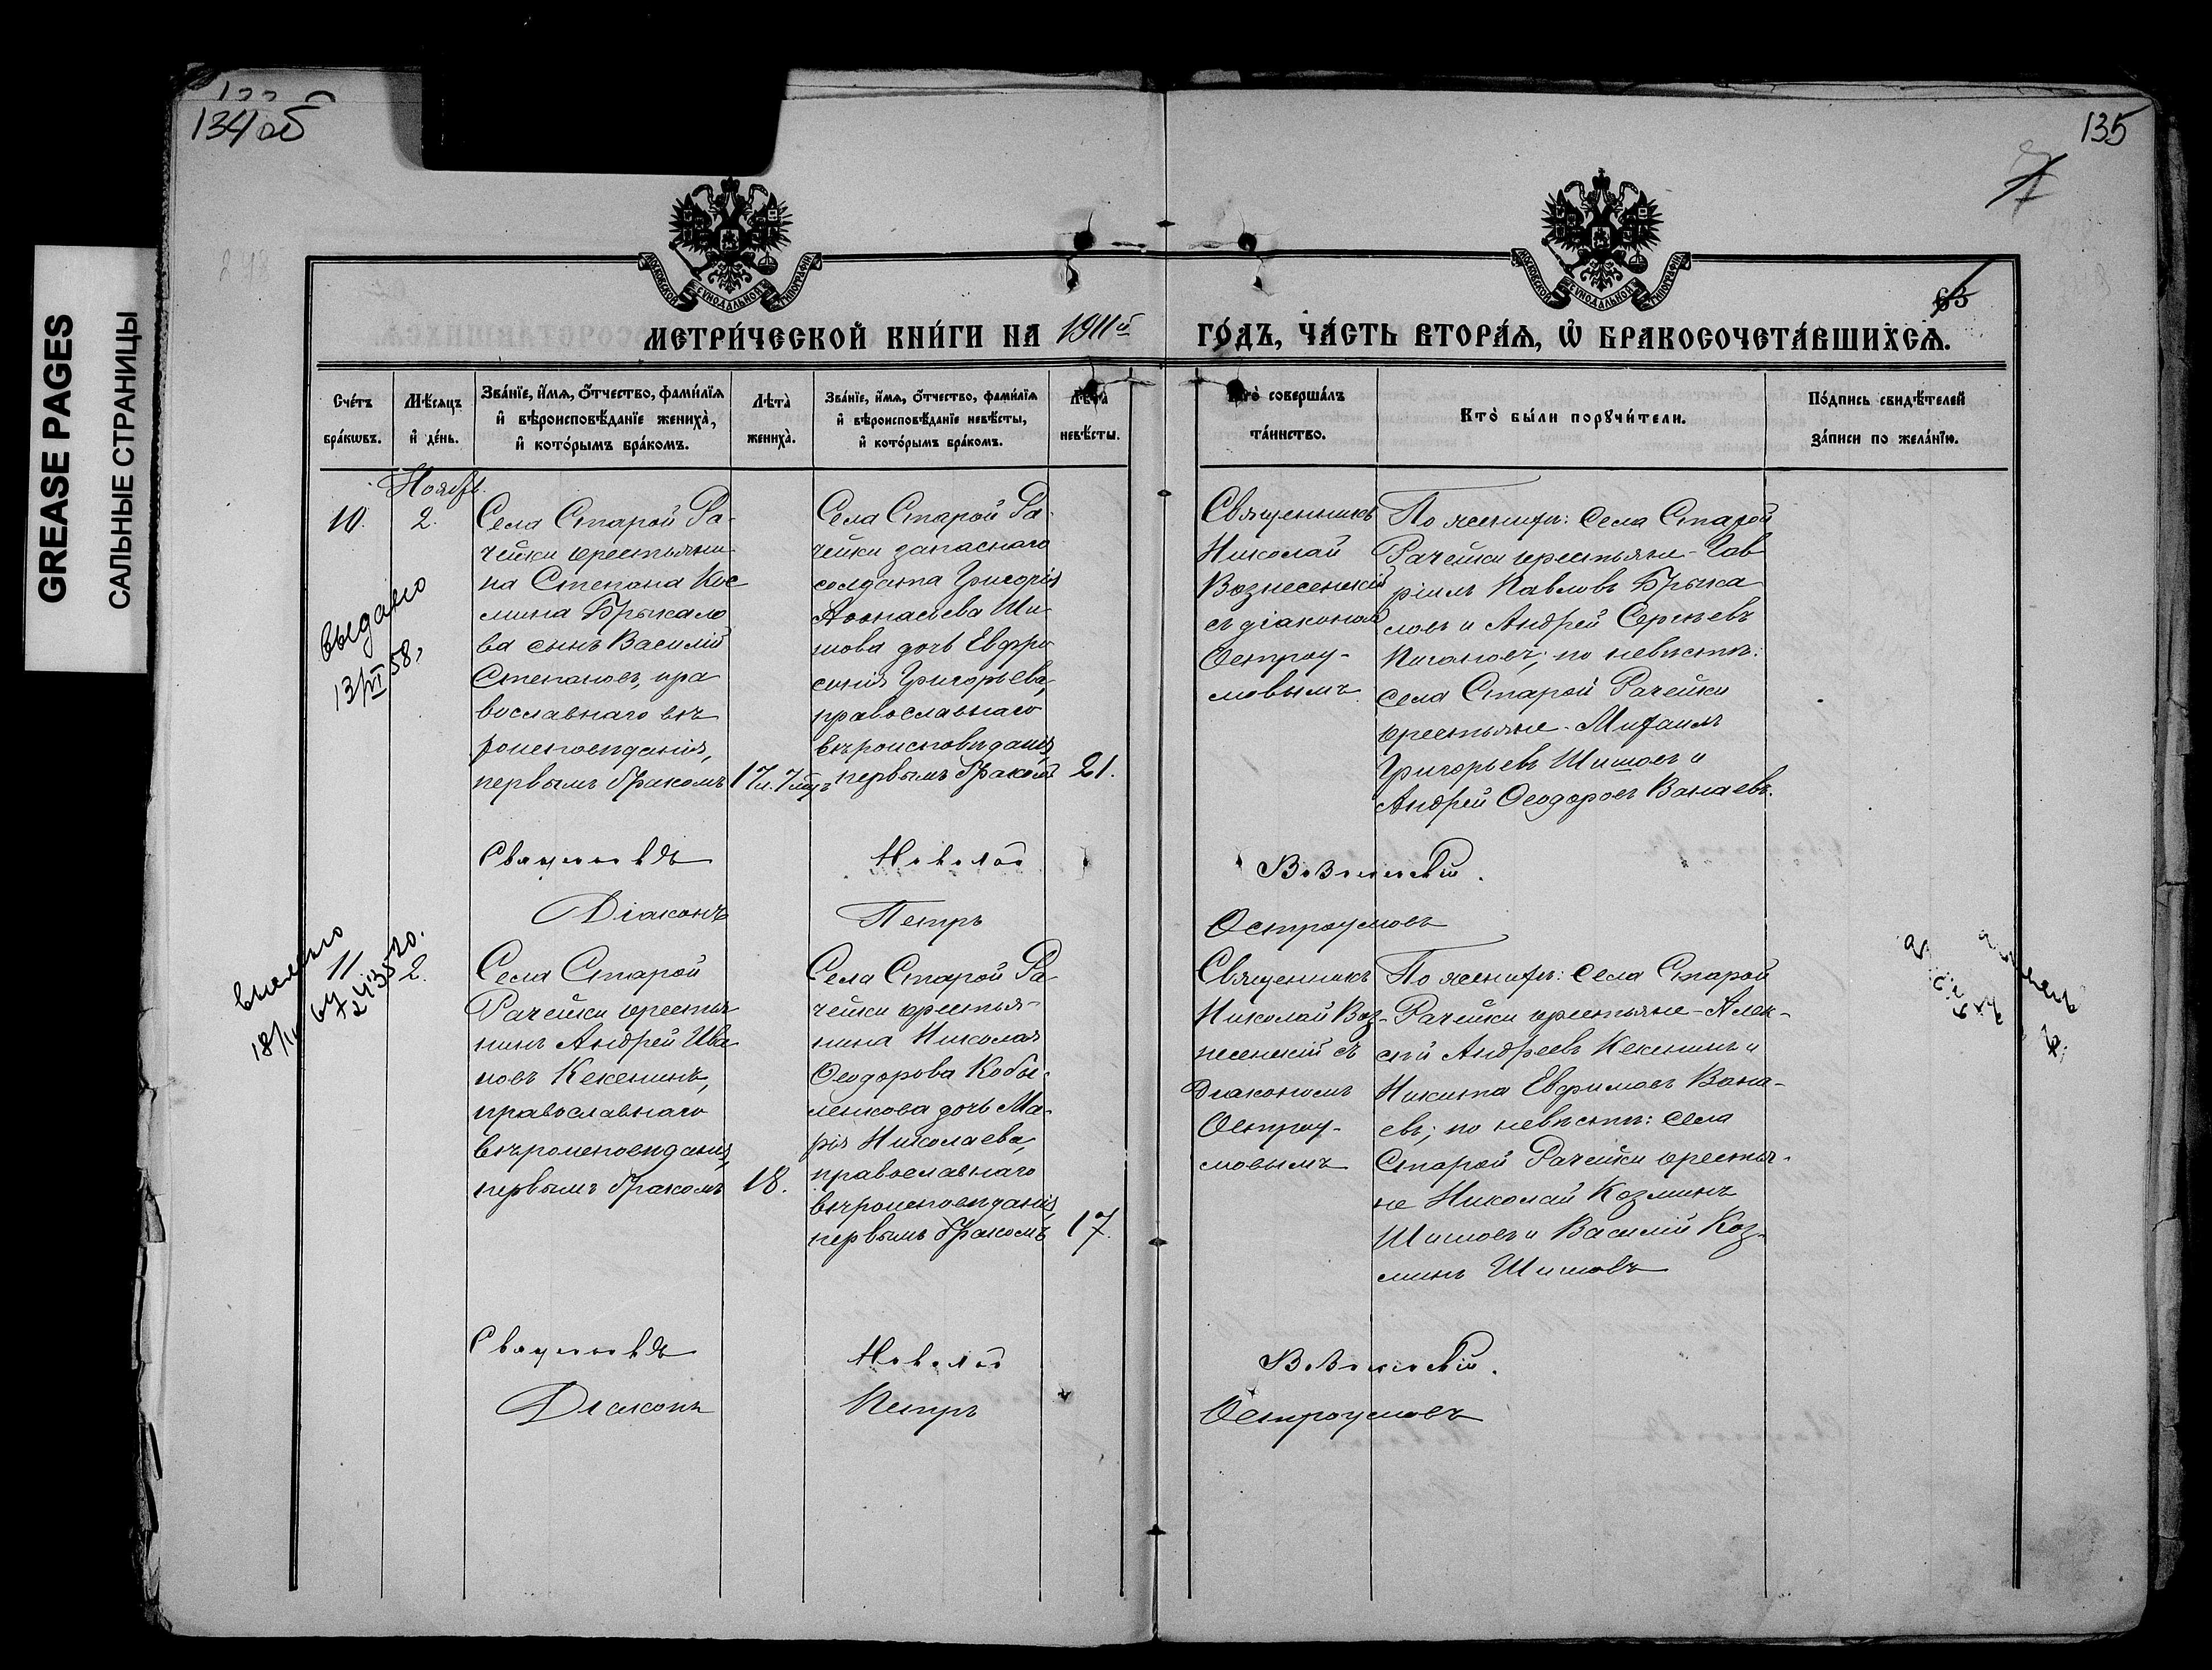 GREASE PAGES
САЛЬНЫЕ СТРАНИЦЫ
134 об
135
63
МОСКОВСКОЙ СѴНОДАЛЬНОЙ ТИПОГРАФІИ
МОСКОВСКОЙ СѴНОДАЛЬНОЙ ТИПОГРАФІИ
МЕТРИ́ЧЕСКОЙ КНИ́ГИ НА 1911й ГО́ДЪ, ЧА́СТЬ ВТОРА́Ѧ, Ѡ҆ БРАКОСОЧЕТА́ВШИХСѦ.
Сче́тъ
бра́кѡвъ.
Мѣ́сѧцъ
и҆ де́нь.
Зва́нїе, и҆́мѧ, ѻ҆́тчество, фами́лїѧ
и҆ вѣроисповѣ́данїе жениха̀,
и҆ кото́рымъ бра́комъ.
Лѣта̀
жениха̀.
Зва́нїе, и҆́мѧ, ѻ҆́тчество, фами́лїѧ
и҆ вѣроисповѣ́данїе невѣ́сты,
и҆ кото́рымъ бра́комъ.
Лѣта̀
невѣ́сты.
Кто̀ соверша́лъ
та́инство.
Кто̀ бы́ли порꙋчи́тели.
По́дпись свидѣ́телей
за́писи по жела́нїю.
Ноябр.
10.
2.
Села Старой Ра-
чейки крестьяни-
на Степана Кос-
мина Брыкало
ва сынъ Василій
Степановъ, пра
вославнаго вѣ
роисповѣданія,
первымъ бракомъ
17 л. 7 мцъ
Села Старой Ра-
чейки запаснаго
солдата Григорія
Аѳонасьева Ши-
шова дочь Евфро
синія Григорьева,
православнаго
вѣроисповѣданія,
первымъ бракомъ
21.
Священникъ
Николай
Вознесенскій
съ діакономъ
Остроу-
мовымъ
По женихѣ: села Старой
Рачейки крестьяне - Гав
ріилъ Павловъ Брыка
ловъ и Андрей Сергѣевъ
по невѣстѣ:
села Старой Рачейки
крестьяне - Михаилъ
Григорьевъ Шишовъ и
Андрей Ѳеодоровъ Ванаевъ.
выдано
13/VI 58,
Священникъ Николай Вознесенскій.
Діаконъ Петръ Остроумовъ
11
2.
Села Старой
Рачейки крестья
нинъ Андрей Ива
новъ Кекенинъ,
православнаго
вѣроисповѣданія,
первымъ бракомъ
18.
Села Старой Ра
чейки крестья-
нина Николая
Ѳеодорова Кобы-
ленкова дочь Ма-
рія Николаева,
православнаго
вѣроисповѣданія,
первымъ бракомъ
17.
Священникъ
Николай Воз-
несенскій съ
діакономъ
Остроу-
мовымъ
По женихѣ: села Старой
Рачейки крестьяне - Алек-
сѣй Андреевъ Кекенинъ и
Никита Евфимовъ Вана-
евъ; по невѣстѣ: села
Старой Рачейки крестья-
не Николай Козминъ
Шишовъ и Василій Коз-
минъ Шишовъ
Священникъ Николай Вознесенскій.
Діаконъ Петръ Остроумовъ